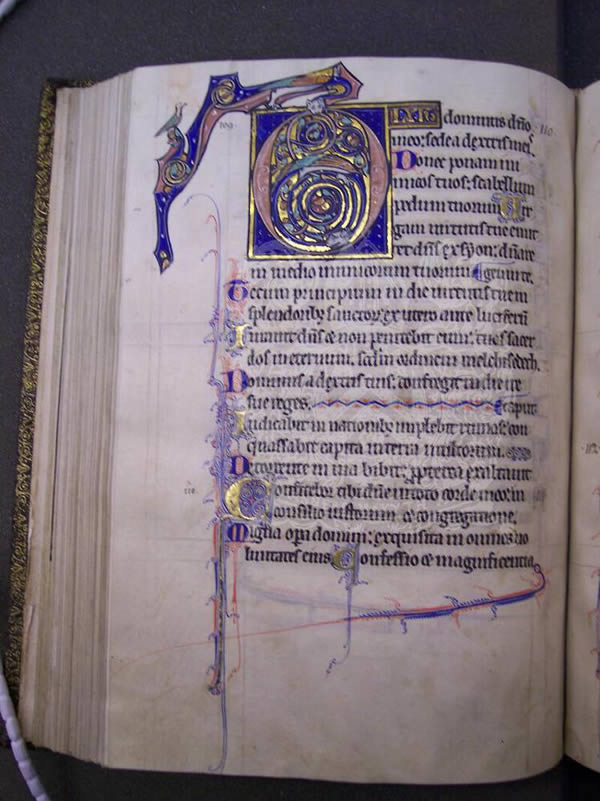 109. DIXIT dominus dño 110.
meo: sede a dextris meis.
Donec ponam ini
micos tuos: scabellum
pedum tuorum. Vir
gam uirtutis tue emit
tet dñs ex syon: dñare
in medio inimicorum tuorum. genui te.
Tecum principium in die uirtutis tue in
splendorib; sanctorꝝ: ex utero ante luciferũ
Iurauit dñs et non penitebit eum: tu es sacer
dos in eternum. scdm ordinem melchisedech.
Dominus a dextris tuis: confregit in die ire
sue reges. caput.
Iudicabit in nationib; implebit ruinas: con
quassabit capita in terra multorum.
De torrente in uia bibit: ꝓpterea exaltauit
110. Confitebor tibi dñe in toto corde meo: in
consilio iustorum et congregatione.
Magna oꝑa domini: exquisita in omnes uo
luntates eius. Confessio et magnificentia
112.